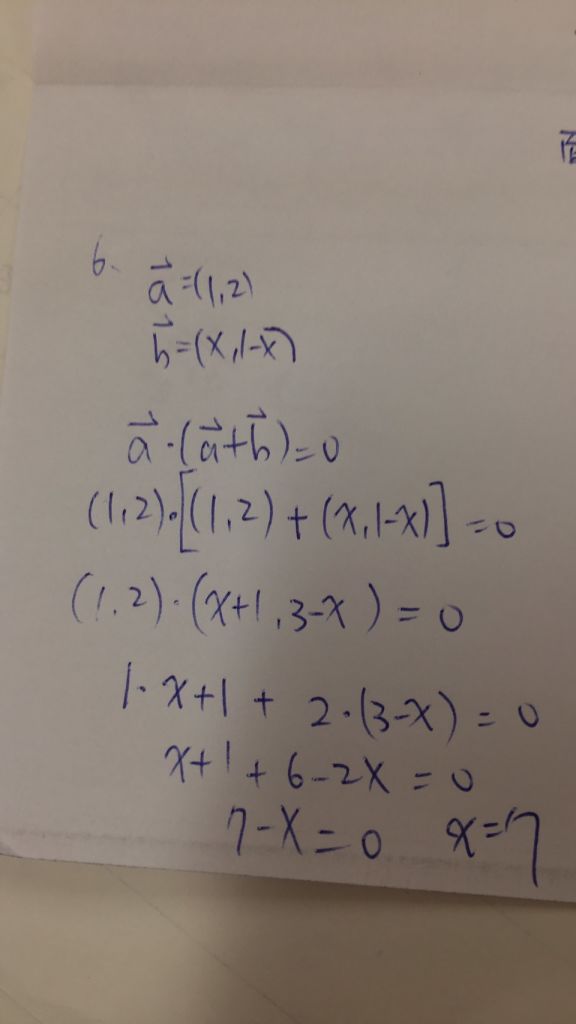 6. a⃗=(1,2)
b⃗=(x,1-x)
a⃗·(a⃗+b⃗)=0
(1,2)·[(1,2)+(x,1-x)]=0
(1,2)·(x+1,3-x)=0
1·x+1+2·(3-x)=0
x+1+6-2x=0
7-x=0 x=7